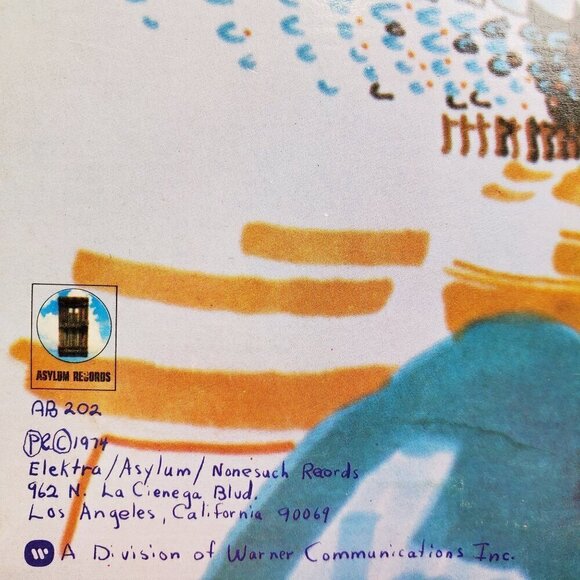 ASYLUM RECORDS
AB 202
P&©1974
Elektra/Asylum/Nonesuch Records
962 N. La Cienega Blvd.
Los Angeles, California 90069
A Division of Warner Communications Inc.